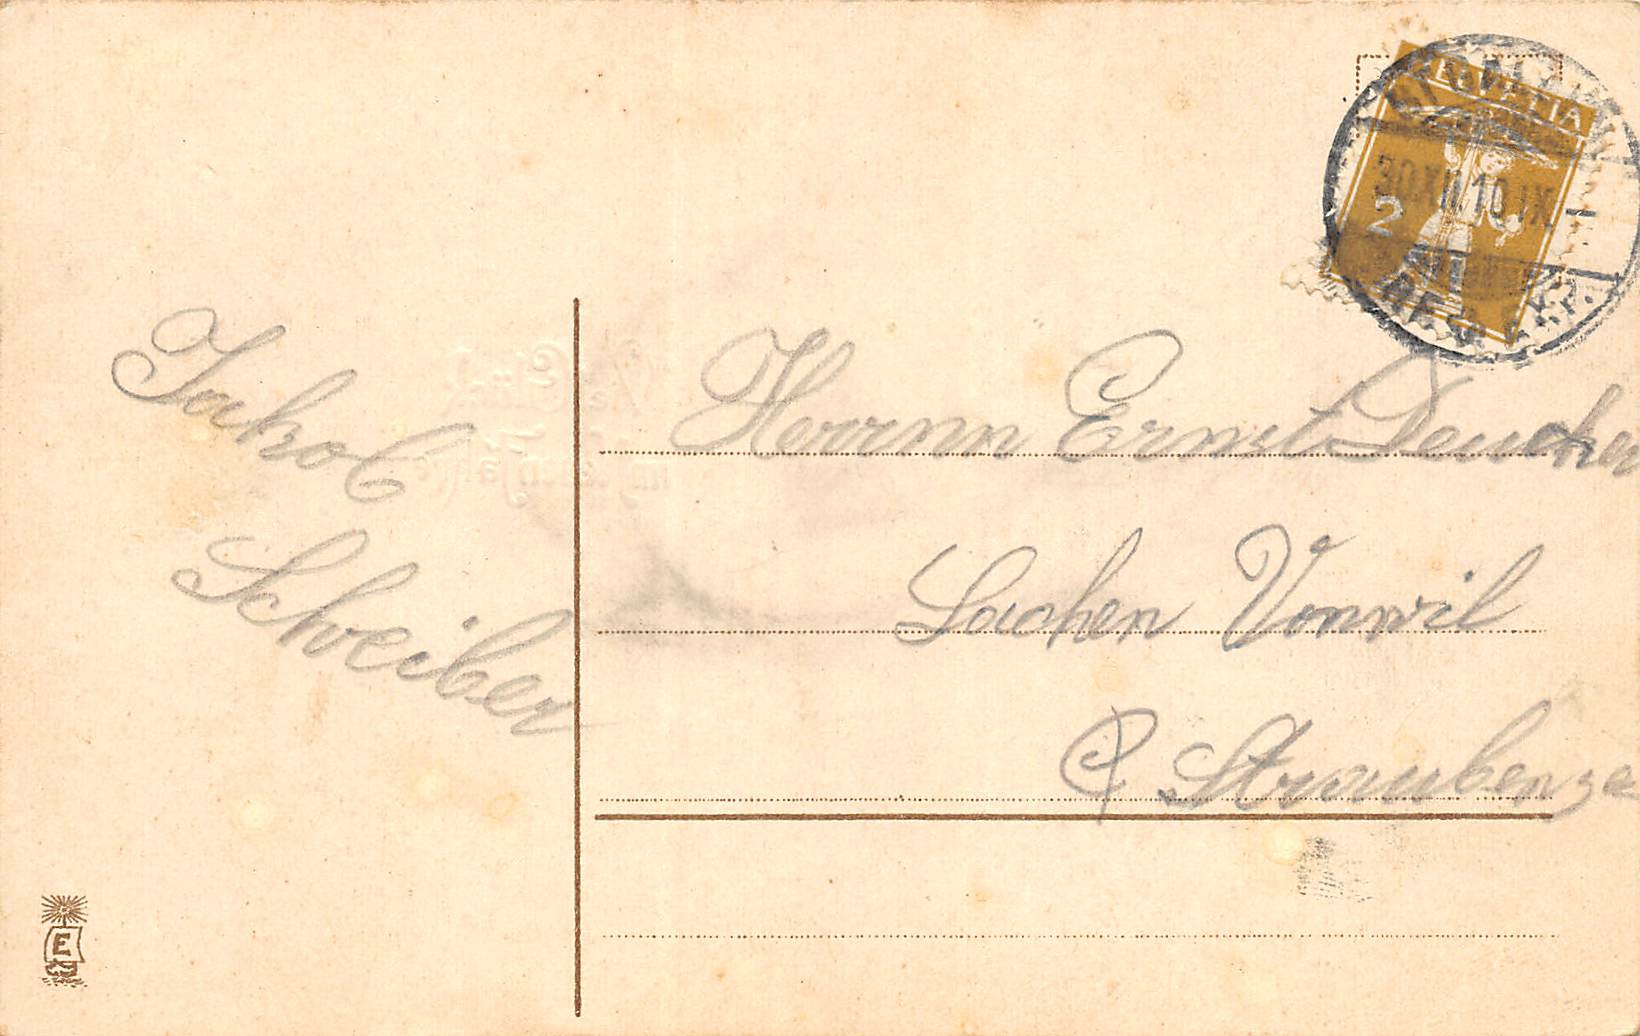 Jakob
Schreiber
Herrn Ernst Deucher
Lachen Vonwil
P. Straubenze
HELVETIA
30.XII.10.IX
2
E